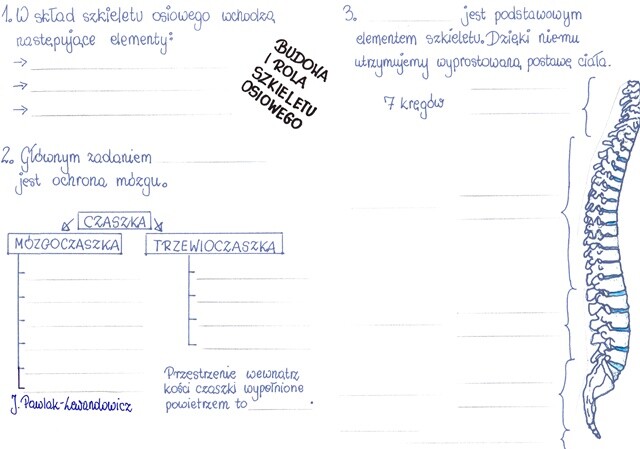 1. W skład szkieletu osiowego wchodzą
następujące elementy:
→
→
→
BUDOWA
I ROLA
SZKIELETU
OSIOWEGO
2. Głównym zadaniem
jest ochrona mózgu.
CZASZKA
MÓZGOCZASZKA
TRZEWIOCZASZKA
Przestrzenie wewnątrz
kości czaszki wypełnione
powietrzem to
J. Pawlak-Lewandowicz
3. jest podstawowym
elementem szkieletu. Dzięki niemu
utrzymujemy wyprostowaną postawę ciała.
7 kręgów